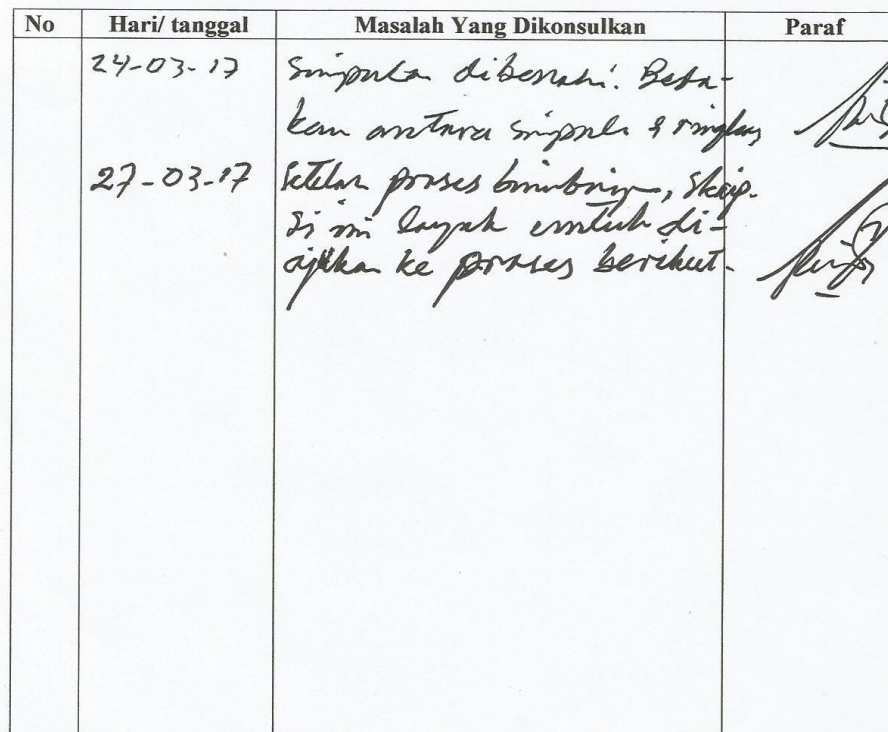 No Hari/ tanggal Masalah Yang Dikonsulkan Paraf
24-03-17 Simpulan dibenahi. Beda-
kan antara simpulan & ringkas
27-03-17 Setelah proses bimbingan, Skrip-
si ini layak untuk di-
ajukan ke proses berikut.